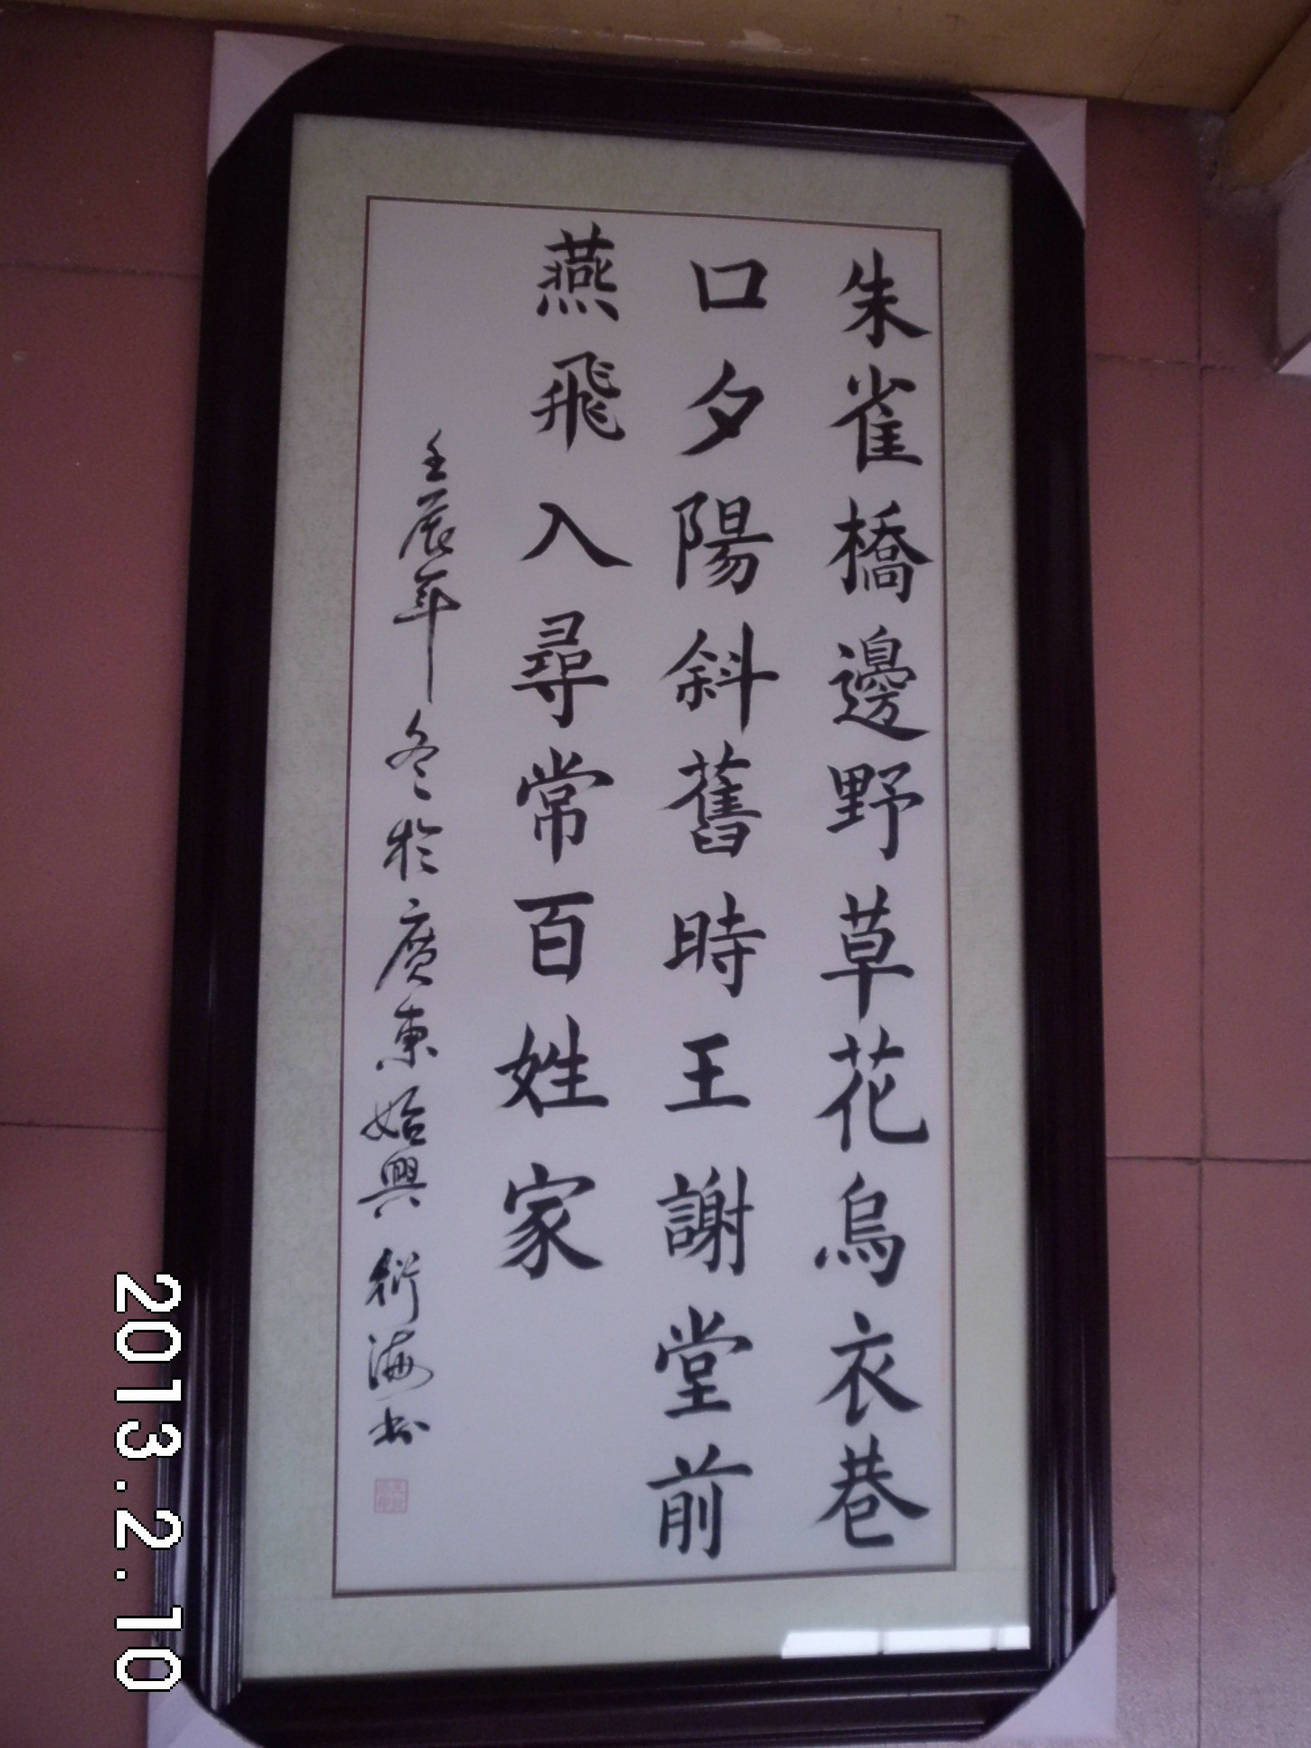 朱雀橋邊野草花烏衣巷
口夕陽斜舊時王謝堂前
燕飛入尋常百姓家
壬辰年冬於廣東始興 衍海書
2013.2.10